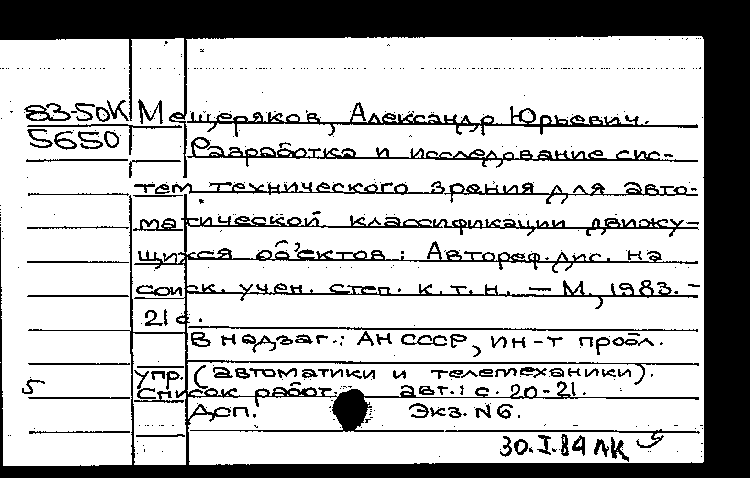 83-50К Мещеряков, Александр Юрьевич.
5650 Разработка и исследование сис-
тем технического зрения для авто-
матической классификации движу-
щихся объектов : Автореф. дис. на
соиск. учен. степ. к. т. н. — М., 1983. -
21 с.
В надзаг.: АН СССР, ин-т пробл.
упр. (автоматики и телемеханики).
5 Список работ. авт.: с. 20-21.
Доп. Экз. N6.
30.I.84 ЛК